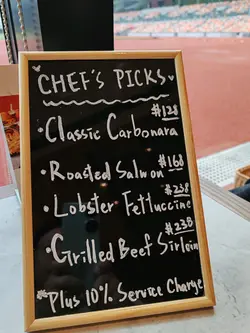 CHEF'S PICKS
$128
•Classic Carbonara
$168
•Roasted Salmon
$238
•Lobster Fettuccine
$238
•Grilled Beef Sirloin
*Plus 10% Service Charge